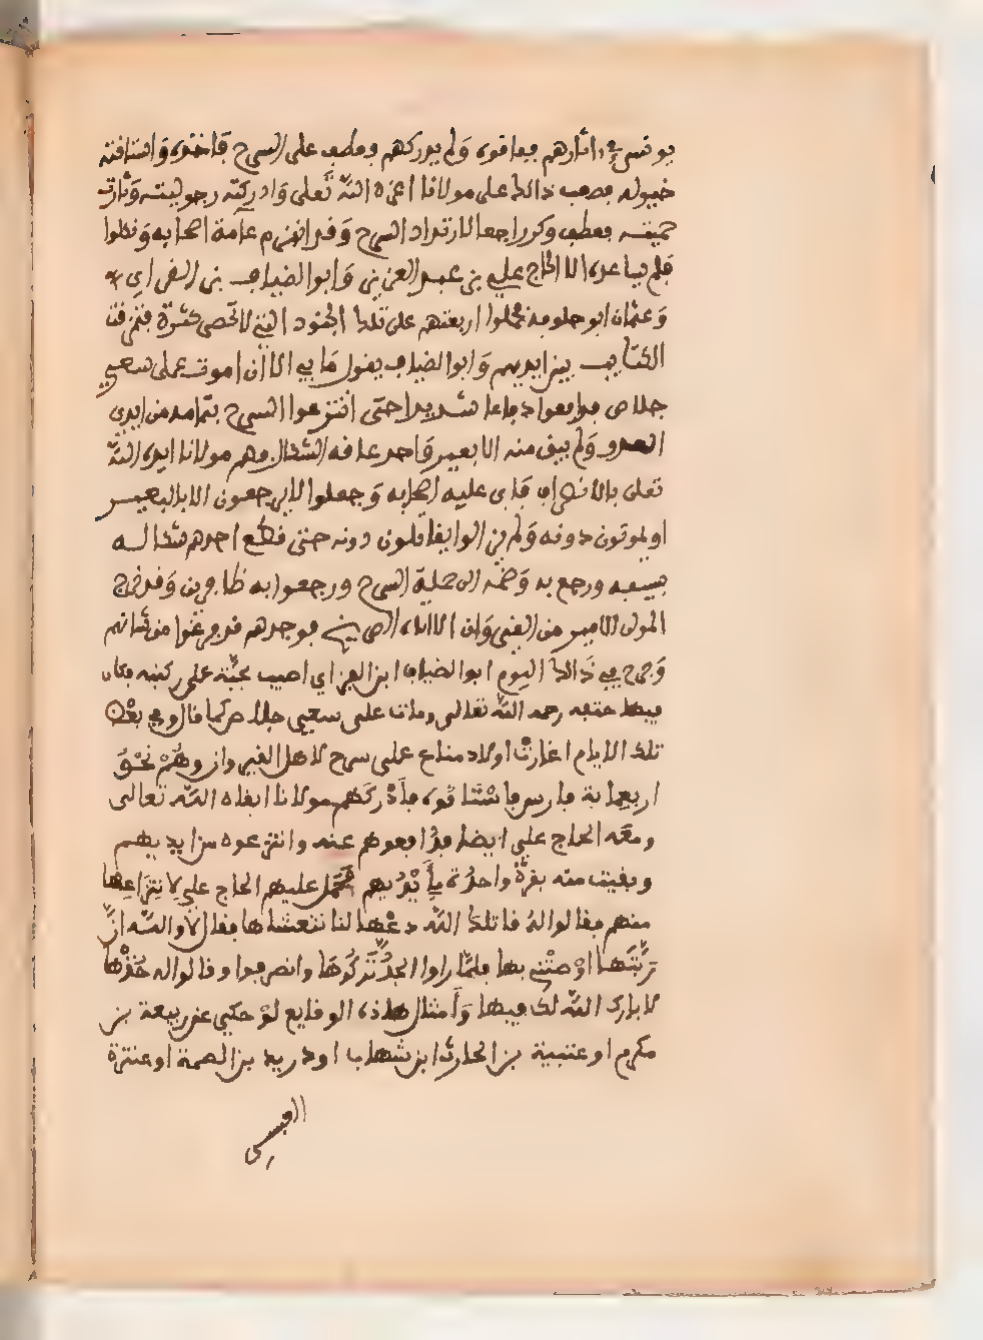 يونس في اثارهم ففاتوه ولم يدركهم وعطف على السرح فاخذه واستاقته
خيوله فصعب ذالك على مولانا اعزه الله تعلى وادركته رجوليته وثارت
حميته فعطف وكر راجعا لارتداد السرح وقد انهزم عامة اصحابه ونكلوا
فلم يساعده الا الحاج علي بن عبد العزيز وابو الضياف بن الفراي
وعثمان ابو حلوفة فحملوا اربعتهم على تلك الجنود التي لا تحصى كثرة فتمزقت
الكتايب بين ايديهم وابو الضياف يقول ما بي الا ان اموت على سعيي
جلاص فدافعوا دفاعا شديدا حتى انتزعوا السرح بتمامه من ايدي
العدو ولم يبق منه الا بعير واحد عاقه الشكال وهم مولانا ايده الله
تعلى بالانصراف فابى عليه اصحابه وجعلوا لا يرجعون الا بالبعير
او يموتون دونه ولم يزالوا يقاتلون دونه حتى قطع احدهم شكاله
بسيفه ورجع به وضمه الى جملة السرح ورجعوا به ظافرين وقد خرج
المولى الامير من القيروان الا انه الصريخ فوجدهم قد فرغوا من شانهم
وجرح في ذالك اليوم ابو الضياف ابن الفراي اصيب بحبة على ركبته فكان
فيها حتفه رحمه الله تعالى ومات على سعيي جلاص كما قال وفي بعض
تلك الايام اغارت اولاد مناع على سرح لاهل القيروان وهم نحو
اربعماية فارس فاستاقوه فادركهم مولانا ابقاه الله تعالى
ومعه الحاج علي ايضا فدافعوهم عنه وانتزعوه من ايديهم
وبقيت منه بقرة واحدة بايديهم فحمل عليهم الحاج علي لانتزاعها
منهم فقالوا له قاتلك الله دعها لنا نتعشاها فقال لا والله ان
ربتها اوصتني بها فلما راوا الجد تركوها وانصرفوا وقالوا له خذها
لا بارك الله لك فيها وامثال هاذه الوقايع لو حكي عن ربيعة بن
مكرم او عتيبة بن الحارث ابن شهاب او دريد بن الصمة او عنترة
العبسي